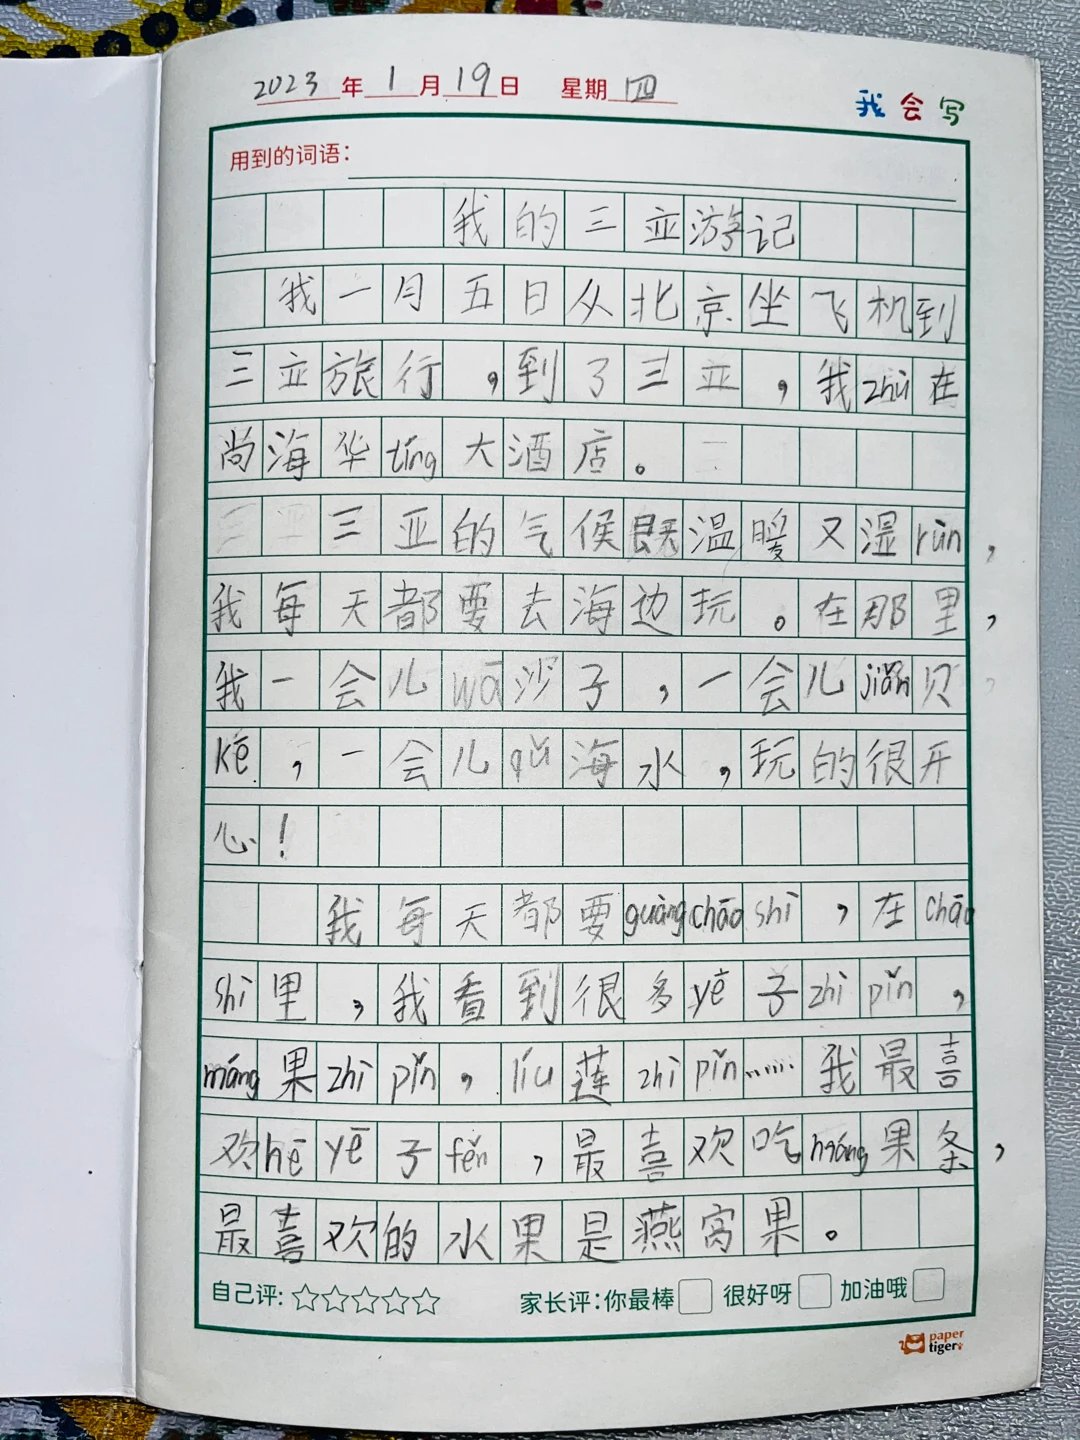 2023年1月19日 星期四
我会写
用到的词语：
我的三亚游记
我一月五日从北京坐飞机到
三亚旅行，到了三亚，我zhù在
尚海华tíng大酒店。
三亚的气候既温暖又湿rùn，
我每天都要去海边玩。在那里，
我一会儿wā沙子，一会儿jiǎn贝
ké，一会儿qǔ海水，玩的很开
心！
我每天都要guàngchāoshì，在chāo
shì里，我看到很多yē子zhìpǐn，
máng果zhìpǐn，líu莲zhìpǐn……我最喜
欢hēyē子fěn，最喜欢吃máng果条，
最喜欢的水果是燕窝果。
自己评：☆☆☆☆☆ 家长评：你最棒□ 很好呀□ 加油哦□
paper
tiger